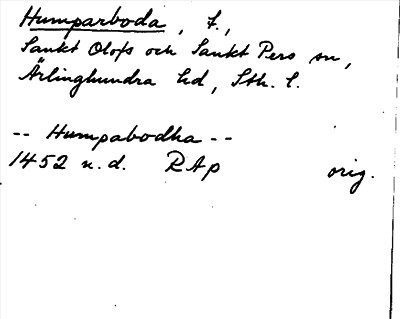 Humparboda, f.,
Sankt Olofs och Sankt Pers sn,
Ärlinghundra hd, Sth. l.
-- Humpabodha --
1452 u.d. RAp orig.